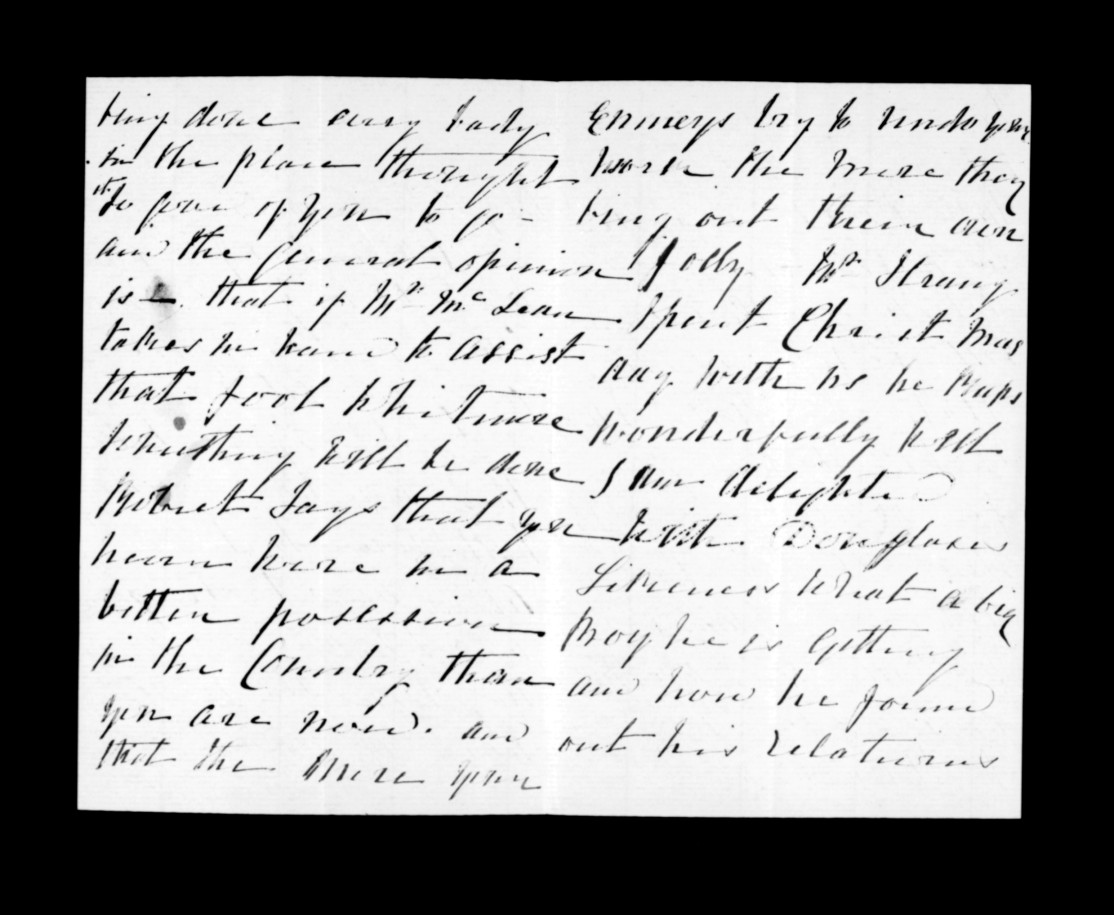 being done every body
in the place thought
it so good of you to go -
and the General opinion
is - that if Mr McLean
takes in hand to assist
that fool Whitmore
something will be done
Robert says that you
never were in a
better possession
in the Country than
you are now. and
that the more your
Enmeys try to undo your
work the more they
bring out their own
folly Mr Strang
spent Christ mas
day with us he keeps
wonderfully well
I am delighted
with Douglases
Likeness What a big
boy he is getting
and how he found
out his relations